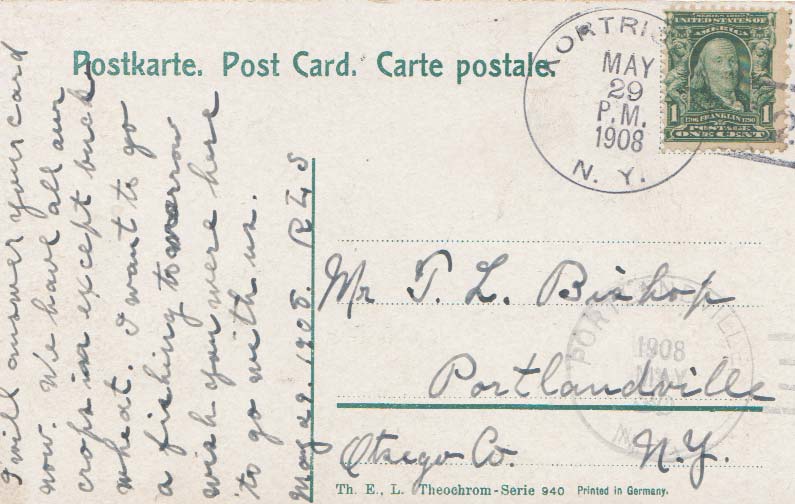 Postkarte. Post Card. Carte postale.
KORTRI
MAY
29
P.M.
1908
N. Y.
SERIES 1902
UNITED STATES OF
AMERICA
1 1706 FRANKLIN 1790 1
POSTAGE
ONE CENT
I will answer your card
now. We have all our
crops in except buck
wheat. I want to go
a fishing tomorrow
wish you were here
to go with us.
May 29. 1908. R L S
Mr T. L. Bishop
Portlandville
Otsego Co. N.Y.
PORTLANDVILLE
1908
MAY
Th. E., L. Theochrom-Serie 940 Printed in Germany.